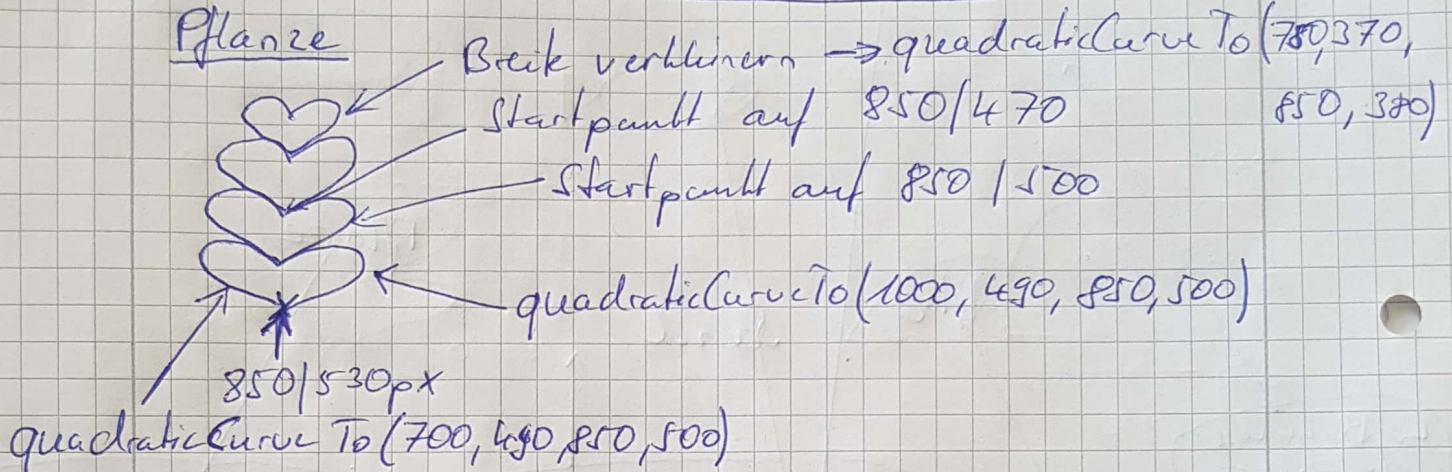 Pflanze
Breite verkleinern → quadraticCurveTo(780,370,
850, 380)
Startpunkt auf 850/470
Startpunkt auf 850/500
quadraticCurveTo(1000, 490, 850, 500)
850/530px
quadraticCurveTo(700, 490, 850, 500)